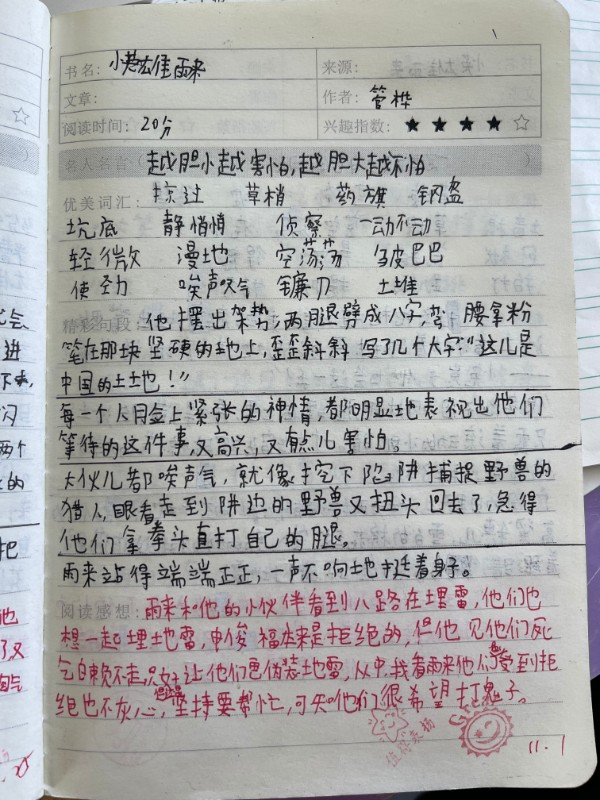 书名: 小英雄雨来 来源:
文章: 作者: 管桦
阅读时间: 20分 兴趣指数: ★★★★☆
名人名言( 越胆小越害怕,越胆大越不怕 )
优美词汇: 掠过 草梢 药旗 钢盔
坑底 静悄悄 侦察 一动不动
轻微 漫地 空荡荡 皱巴巴
使劲 唉声叹气 镰刀 土堆
精彩句段: 他摆出架势,两腿劈成八字,弯腰拿粉
笔在那块坚硬的地上,歪歪斜斜写了几个大字:"这儿是
中国的土地!"
每一个人的脸上紧张的神情,都明显地表现出他们
等待的这件事,又高兴,又有点儿害怕。
大伙儿都唉声气,就像挖下陷阱捕捉野兽的
猎人,眼看走到阱边的野兽又扭头回去了,急得
他们拿拳头直打自己的腿。
雨来站得端端正正,一声不响地挺着身子。
阅读感想: 雨来和他的小伙伴看到八路在埋雷,他们也
想一起埋地雷,申俊福本来是拒绝的,但他见他们死
气白赖不走,只好让他们去伪装地雷,从中,我看雨来他们受到拒
绝也不灰心,坚持要帮忙,可知他们很希望打鬼子。
值得表扬
11.1